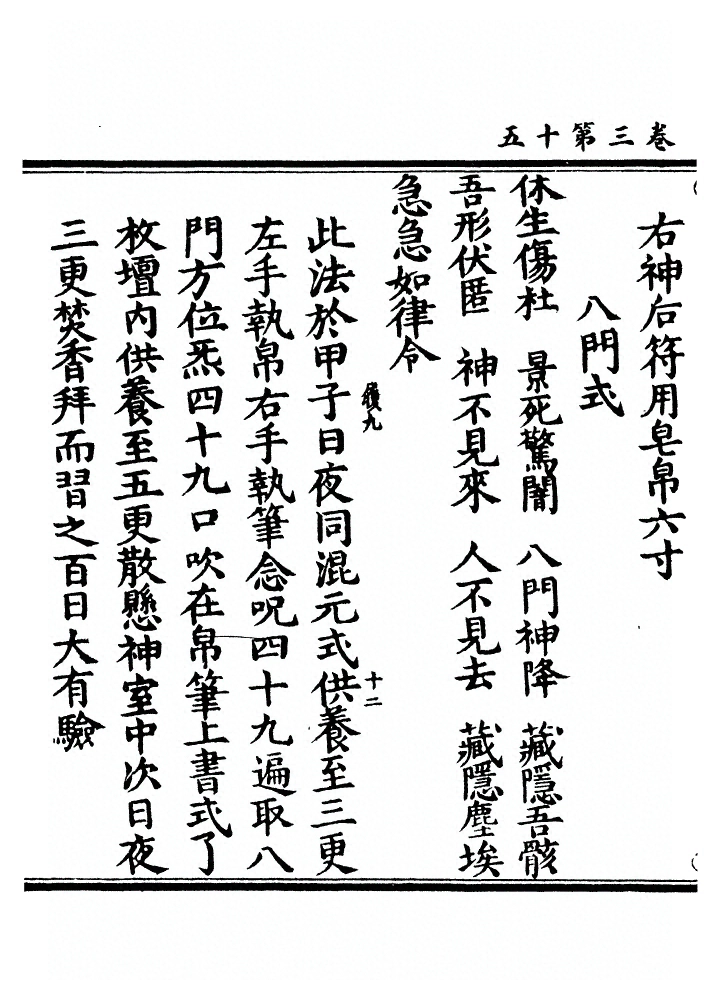 卷三第十五
右神后符用皂帛六寸
八門式
休生傷杜 景死驚闇 八門神降 藏隱吾骸
吾形伏匿 神不見來 人不見去 藏隱塵埃
急急如律令
履九 十二
此法於甲子日夜同混元式供養至三更
左手執帛右手執筆念呪四十九遍取八
門方位炁四十九口吹在帛筆上書式了
枚壇內供養至五更散懸神室中次日夜
三更焚香拜而習之百日大有驗